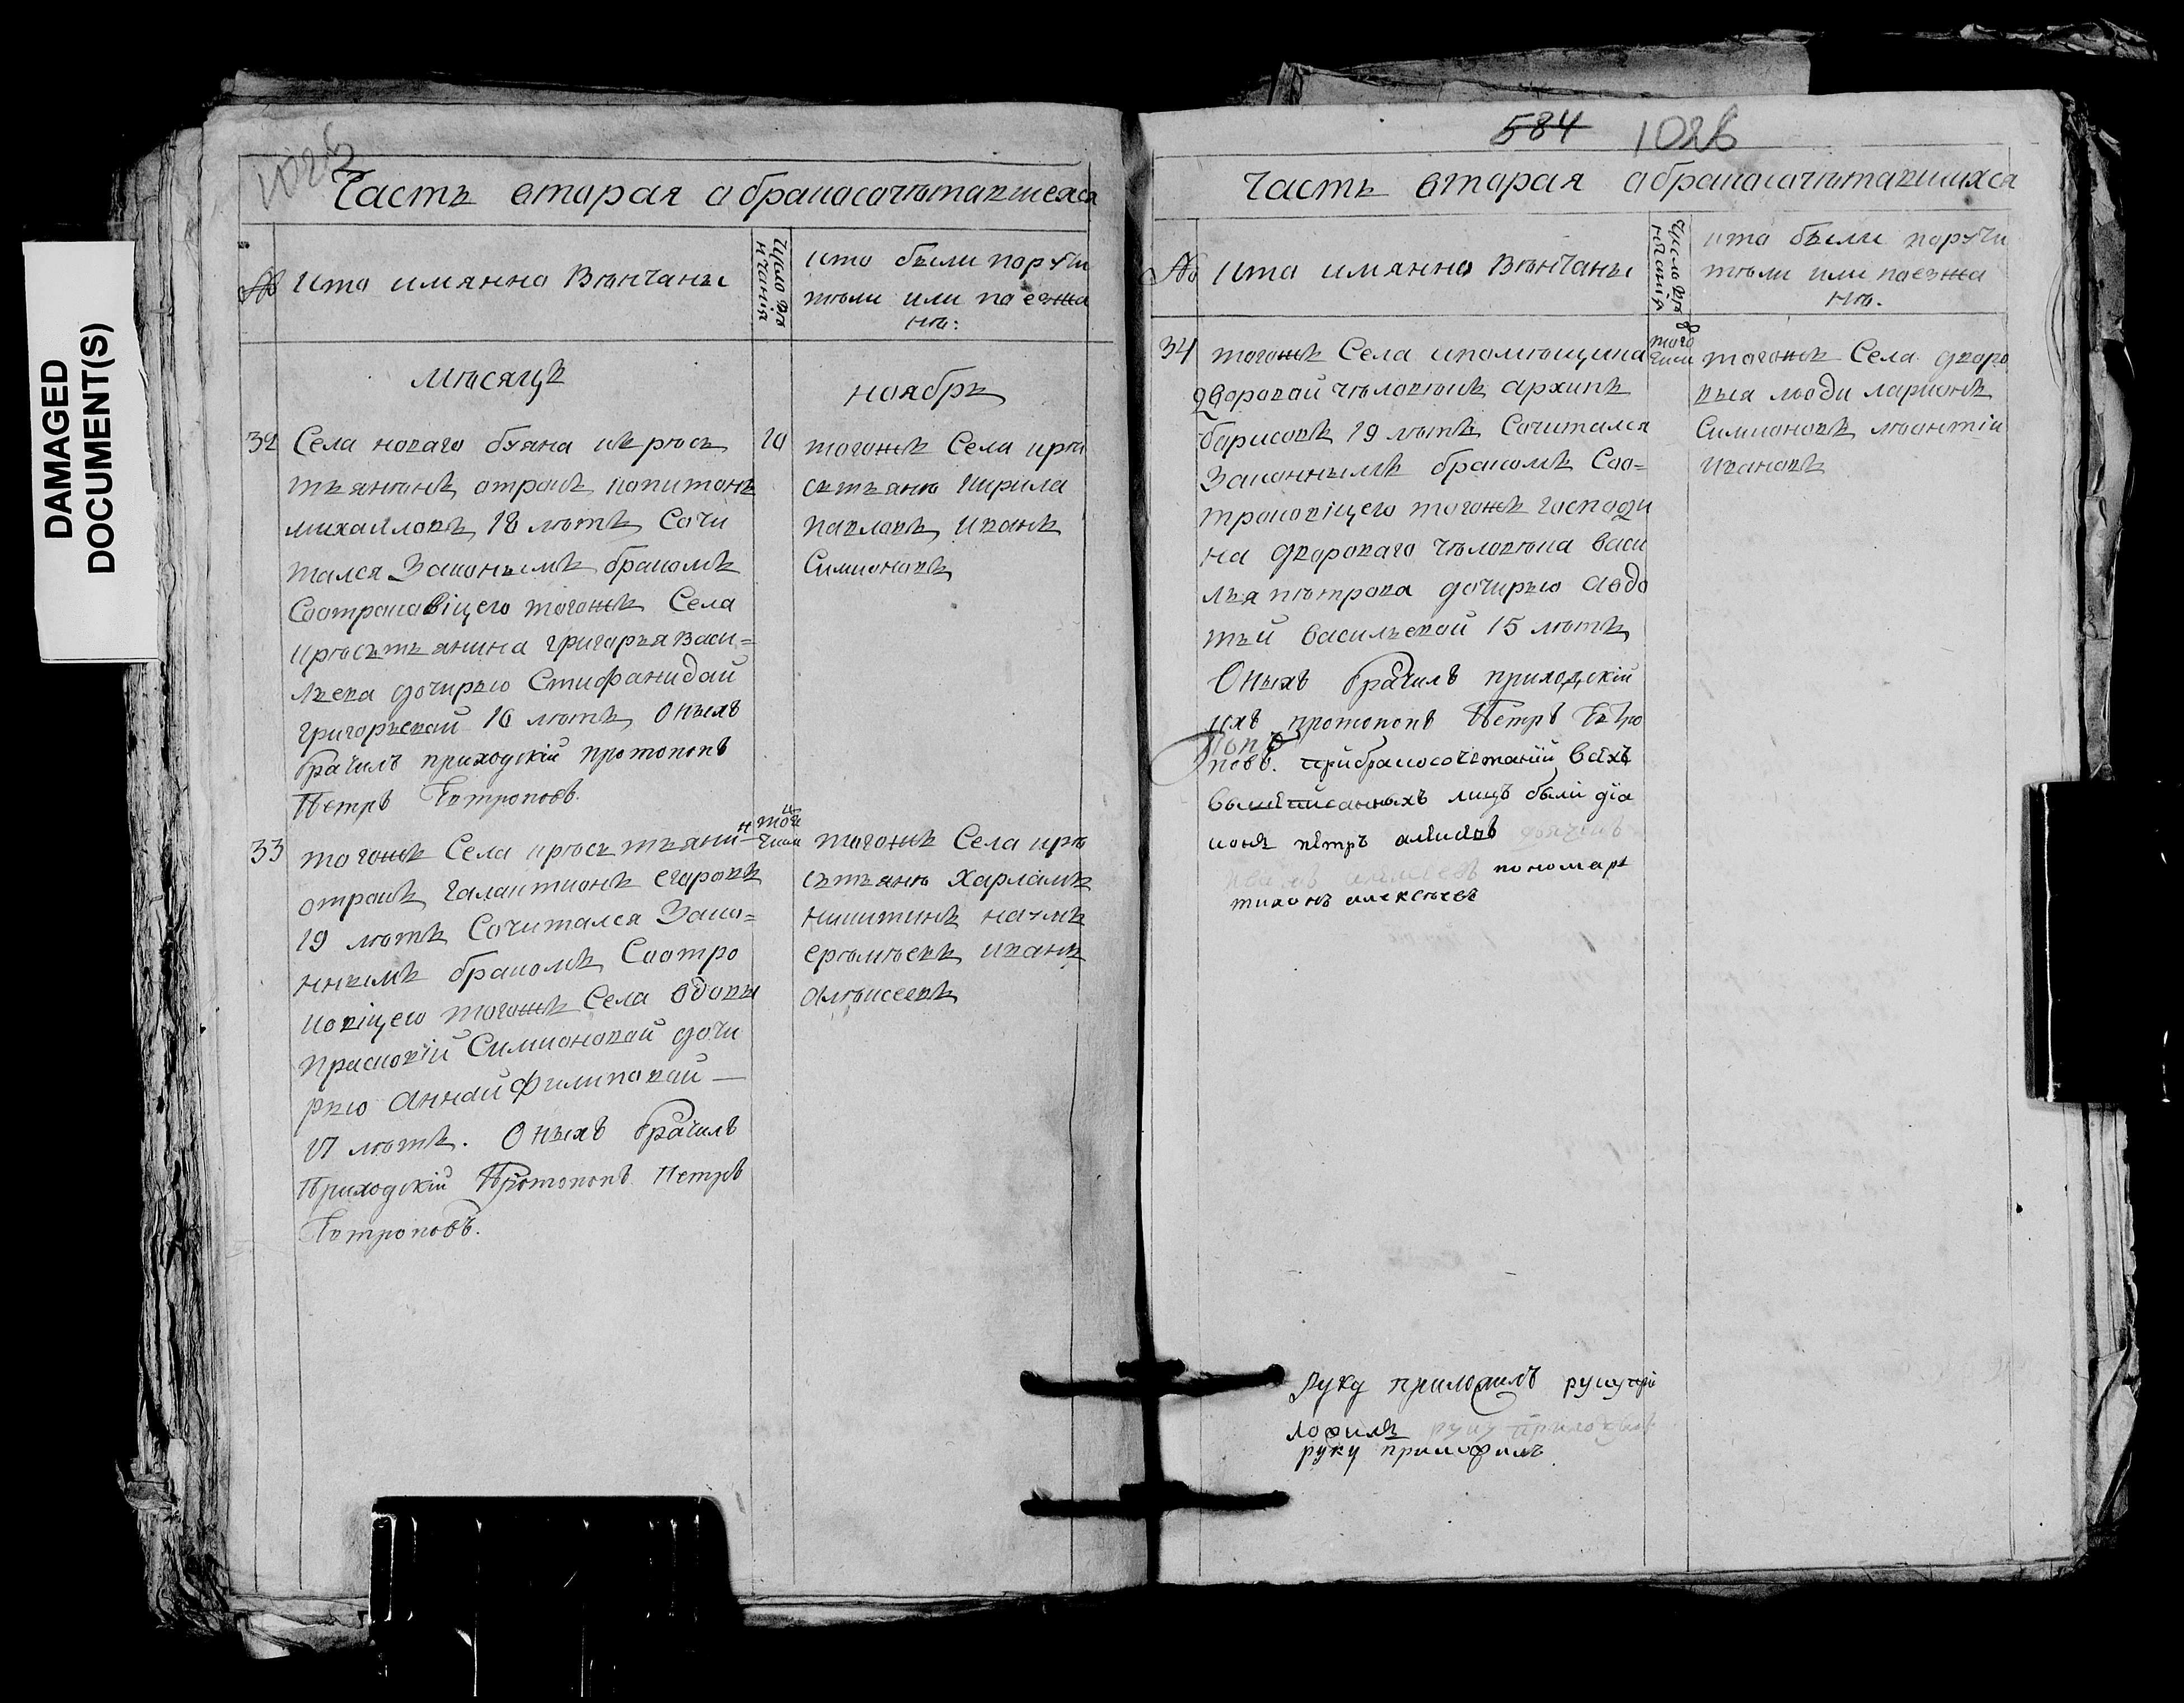 DAMAGED
DOCUMENT(S)
1026
Часть вторая о бракосочетавшехся
№ Кто имянно Венчаны
Число венчания
кто были поручи
тели или поезжа
не:
Месяцъ
ноябрь
32 Села новаго буяна искресь
тьяненъ отрокъ капитонъ
михайловъ 18 летъ Сочи
тался Законымъ бракомъ
Соотроковіцею тогожъ Села
крестьянина григорья васи=
льева дочирью Стифанидой
григорьевой 16 летъ Оныхъ
брачилъ приходскій протопопъ
Петръ Петроповъ.
10
тогожъ Села кре
сьтьяне кирила
павловъ иванъ
Симионовъ
33 тогожъ Села кресьтьяни—нъ
отрокъ галактионъ егоровъ
19 летъ Сочитался Зако=
ннымъ бракомъ Соотро
ковіцею тогожъ Села вдовы
прасковіи Симионовой дочи
рью Анной филиповой —
17 летъ. Оныхъ брачилъ
Приходскій Протопопъ Петръ
Петроповъ.
того
числа
тогожъ Села кре
сьтьяне Харламъ
никитинъ наумъ
еремеевъ иванъ
алексеевъ
584 1026
Часть вторая о бракосочетавшихся
№ Кто имянно Венчаны
Число венчания
кто были поручи
тели или поезжа
не.
34 тогожъ Села ипомещика
дворовой человекъ архипъ
барисовъ 19 летъ Сочитался
Законнымъ бракомъ Соо=
троковіцею тогожъ господи
на двороваго человека васи
лья петрова дочирью авдо
тьй васильевой 15 летъ
Оныхъ брачилъ приходскій
ихъ протопопъ Петръ Петро
повъ. при бракосочетаніи всехъ
вышеписанныхъ лицъ были діа
конъ петръ
пономарь
тихонъ алексеевъ
того
числа
тогожъ Села дворо
выя люди ларионъ
Симионовъ леонтіи
ивановъ
Руку приложилъ руку при
ложилъ руку приложилъ
руку приложилъ